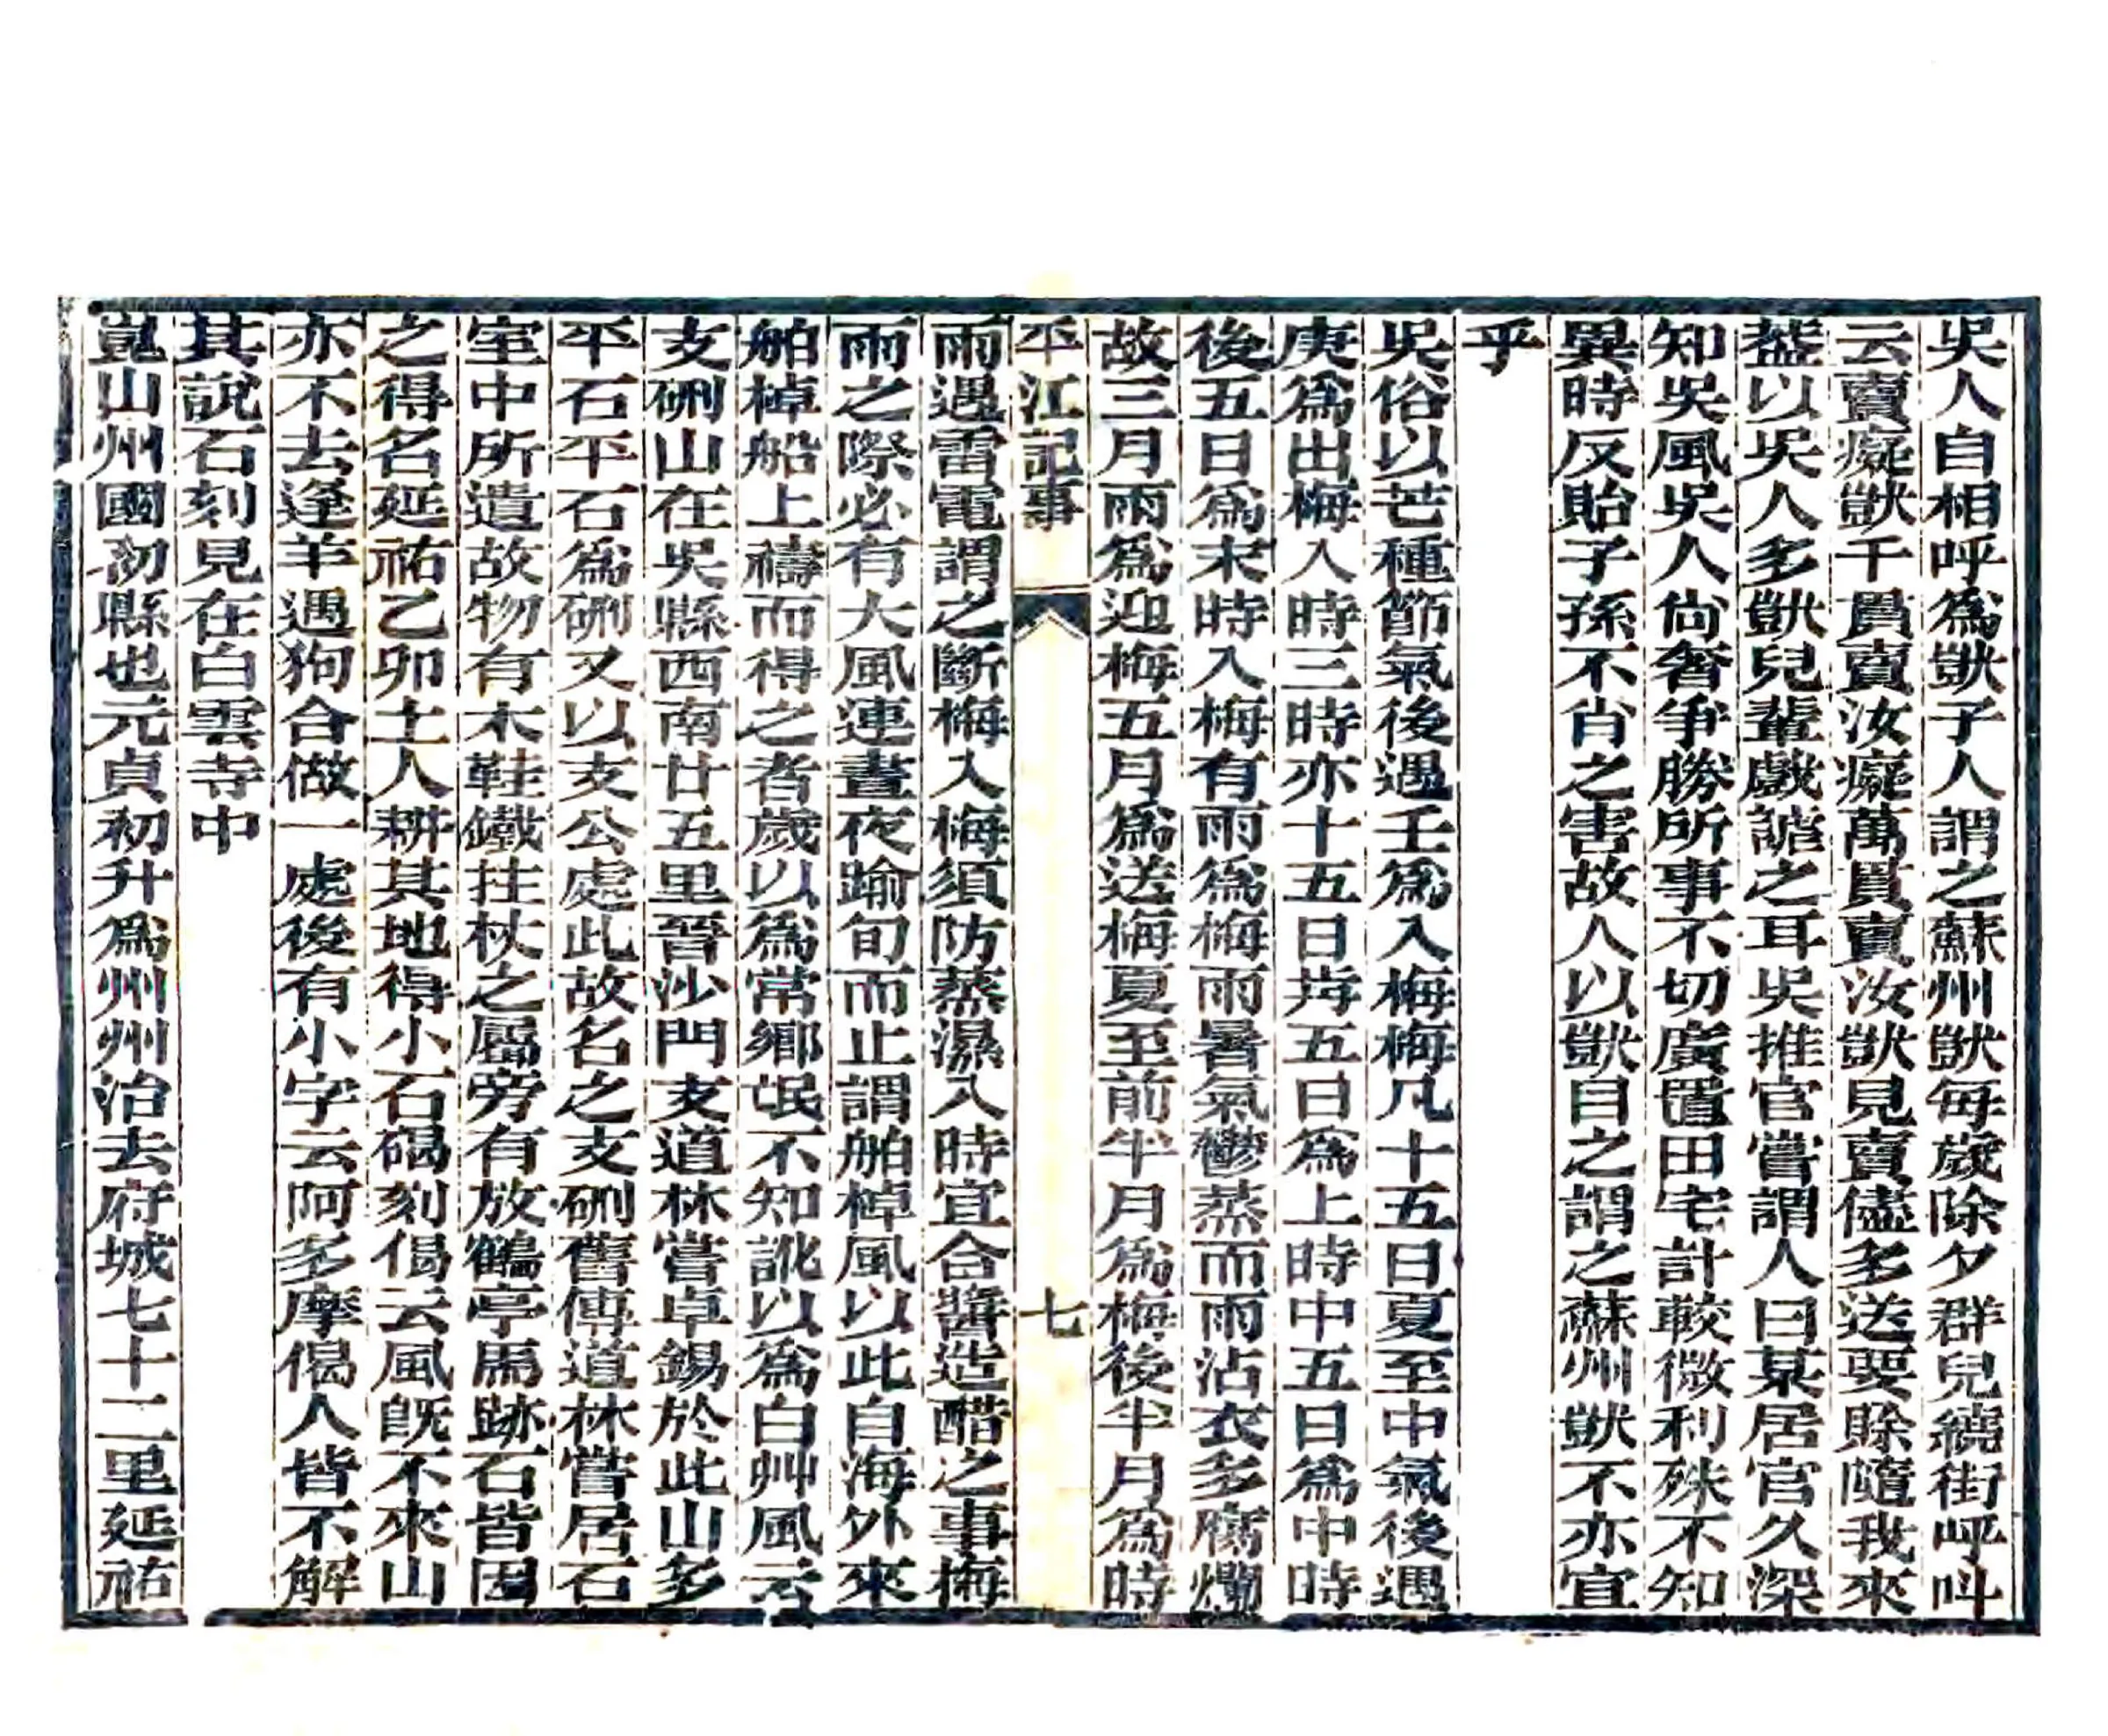 吳人自相呼爲獃子人謂之蘇州獃每歲除夕群兒繞街呼呌
云賣癡獃千貫賣汝癡萬貫賣汝獃見賣儘多送要賒隨我來
葢以吳人多獃兒輩戲謔之耳吳推官嘗謂人曰某居官久深
知吳風吳人尙奢爭勝所事不切廣置田宅計較微利殊不知
異時反貽子孫不肖之害故人以獃目之謂之蘇州獃不亦宜
乎
吳俗以芒種節氣後遇壬爲入梅梅凡十五日夏至中氣後遇
庚爲出梅入時三時亦十五日歬五日爲上時中五日爲中時
後五日爲末時入梅有雨爲梅雨暑氣鬱蒸而雨沾衣多腐爛
故三月雨爲迎梅五月爲送梅夏至前半月爲梅後半月爲時
平江記事 七
雨遇雷電謂之斷梅入梅須防蒸濕入時宜合醬造醋之事梅
雨之際必有大風連晝夜踰旬而止謂舶棹風以此自海外來
舶棹船上禱而得之者歲以爲常鄉氓不知訛以爲白艸風云
支硎山在吳縣西南廿五里晉沙門支道林嘗卓錫於此山多
平石平石爲硎又以支公處此故名之支硎舊傳道林嘗居石
室中所遺故物有木鞋鐵拄杖之屬旁有放鶴亭馬跡石皆因
之得名延祐乙卯土人耕其地得小石碣刻偈云風旣不來山
亦不去逢羊遇狗合做一處後有小字云阿多摩偈人皆不解
其說石刻見在白雲寺中
崑山州國初縣也元貞初升爲州州治去府城七十二里延祐